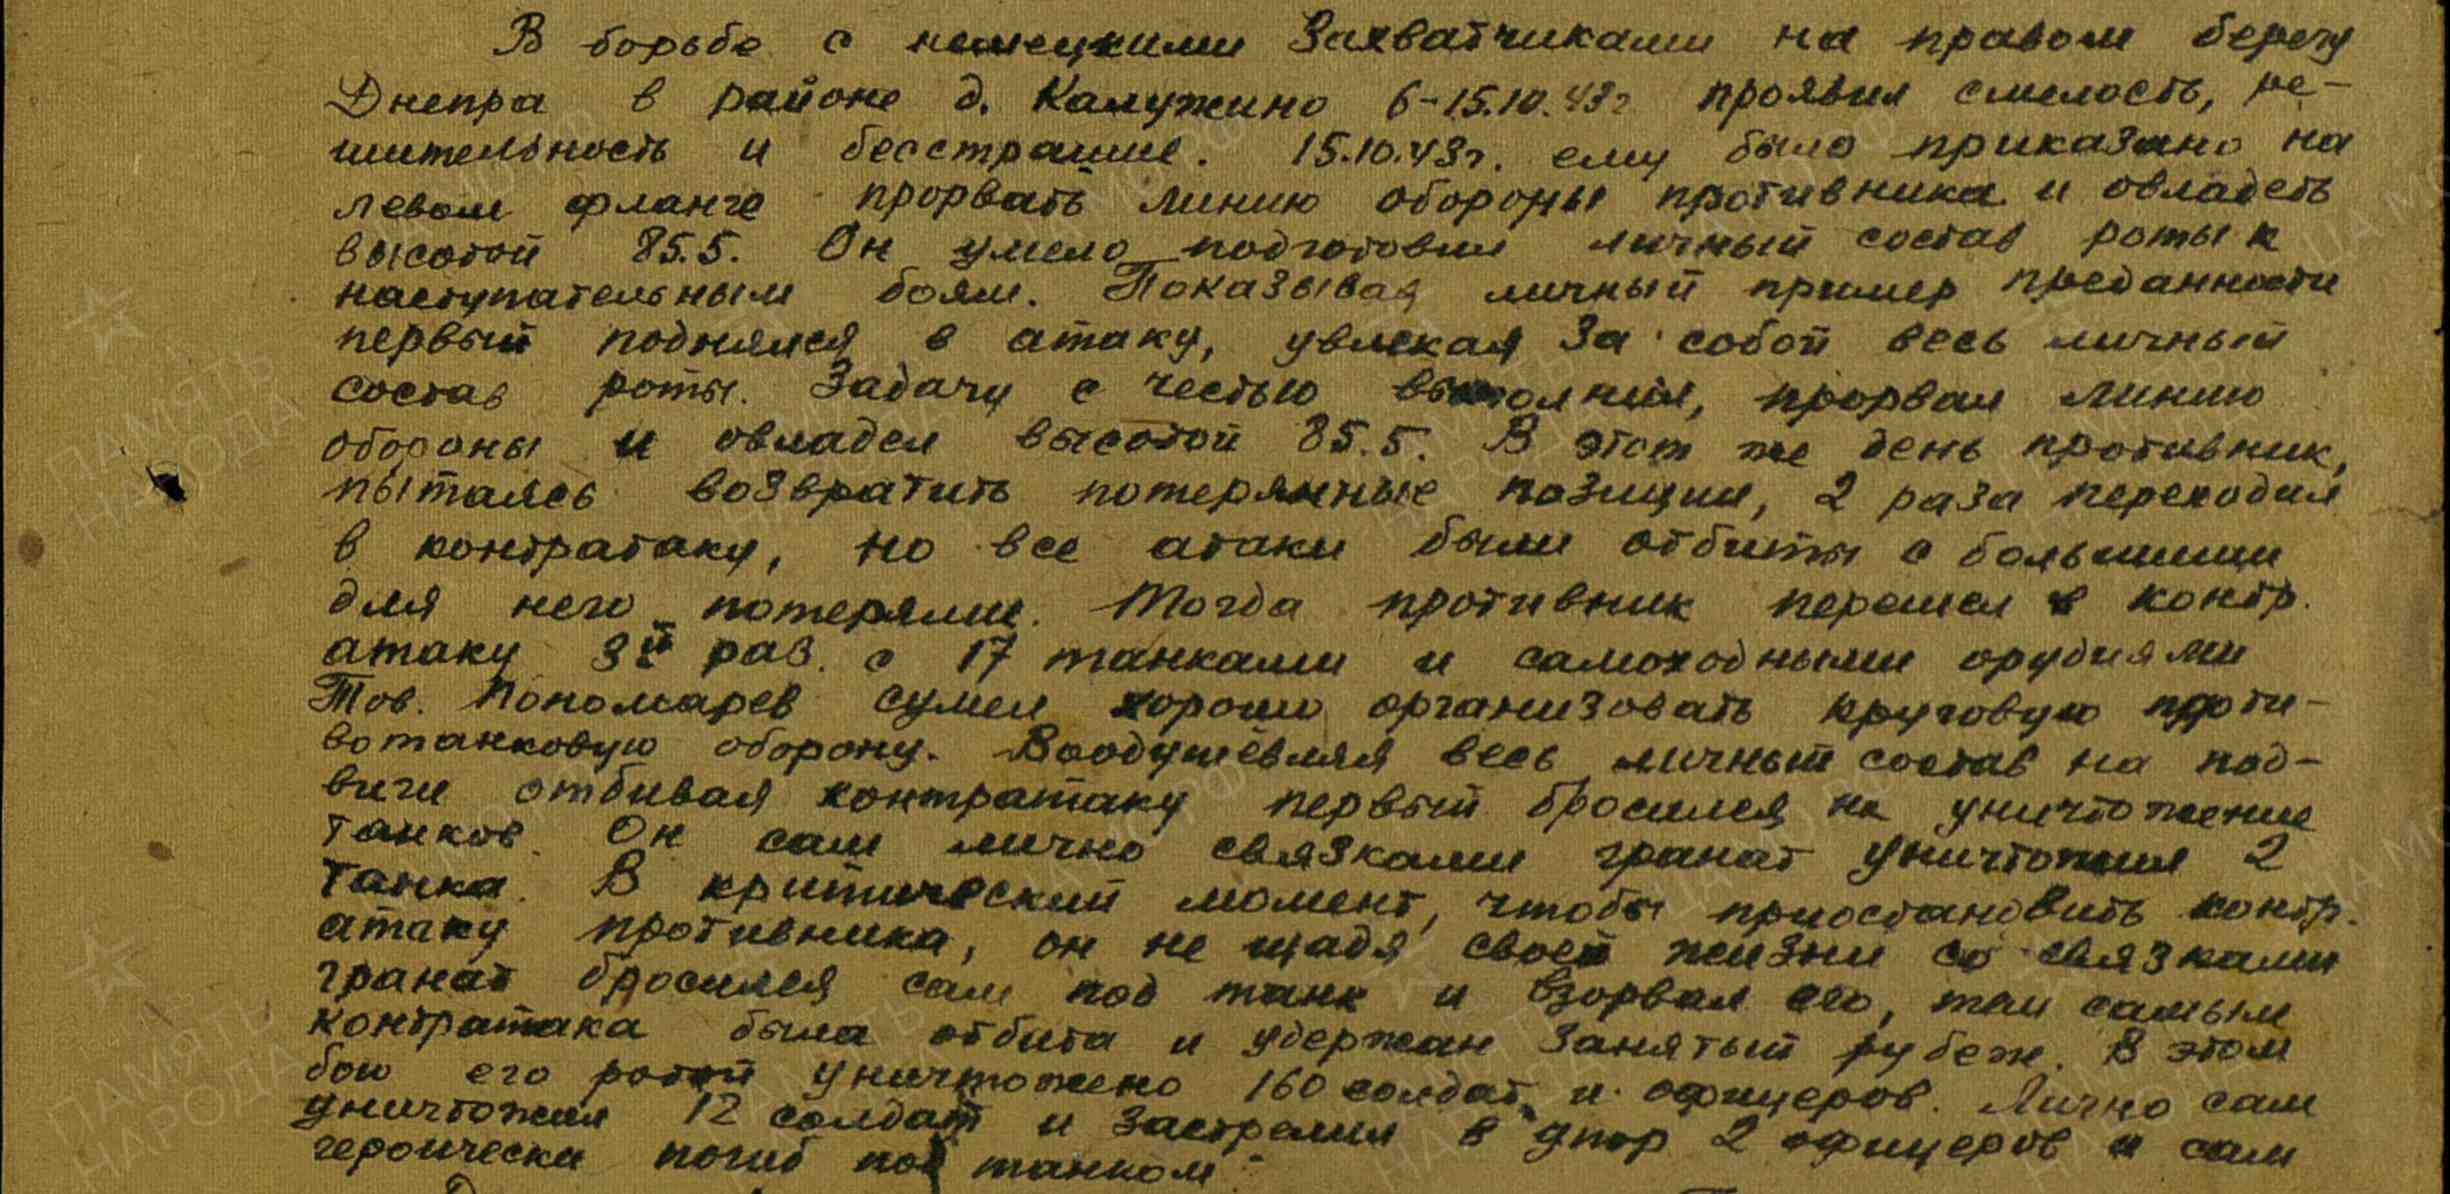 В борьбе с немецкими Захватчиками на правом берегу
Днепра в районе д. Калужино 6-15.10.43г проявил смелость, ре-
шительность и бесстрашие. 15.10.43г. ему было приказано на
левом фланге прорвать линию обороны противника и овладеть
высотой 85.5. Он умело подготовил личный состав роты к
наступательным боям. Показывая личный пример преданности
первый поднялся в атаку, увлекая за собой весь личный
состав роты. Задачу с честью выполнил, прорвал линию
обороны и овладел высотой 85.5. В этот же день противник,
пытаясь возвратить потерянные позиции, 2 раза переходил
в контратаку, но все атаки были отбиты с большими
для него потерями. Тогда противник перешел в контр.
атаку 3й раз. с 17 танками и самоходными орудиями
Тов. Пономарев сумел хорошо организовать круговую проти-
вотанковую оборону. Воодушевляя весь личный состав на под-
виги отбивая контратаку первый бросился на уничтожение
танков. Он сам лично связками гранат уничтожил 2
танка. В критический момент, чтобы приостановить контр.
атаку противника, он не щадя своей жизни со связками
гранат бросился сам под танк и взорвал его, тем самым
контратака была отбита и удержан занятый рубеж. В этом
бою его ротой уничтожено 160 солдат и офицеров. Лично сам
уничтожил 12 солдат и застрелил в упор 2 офицеров и сам
героически погиб под танком
ПАМЯТЬ
НАРОДА
ПАМЯТЬ
НАРОДА